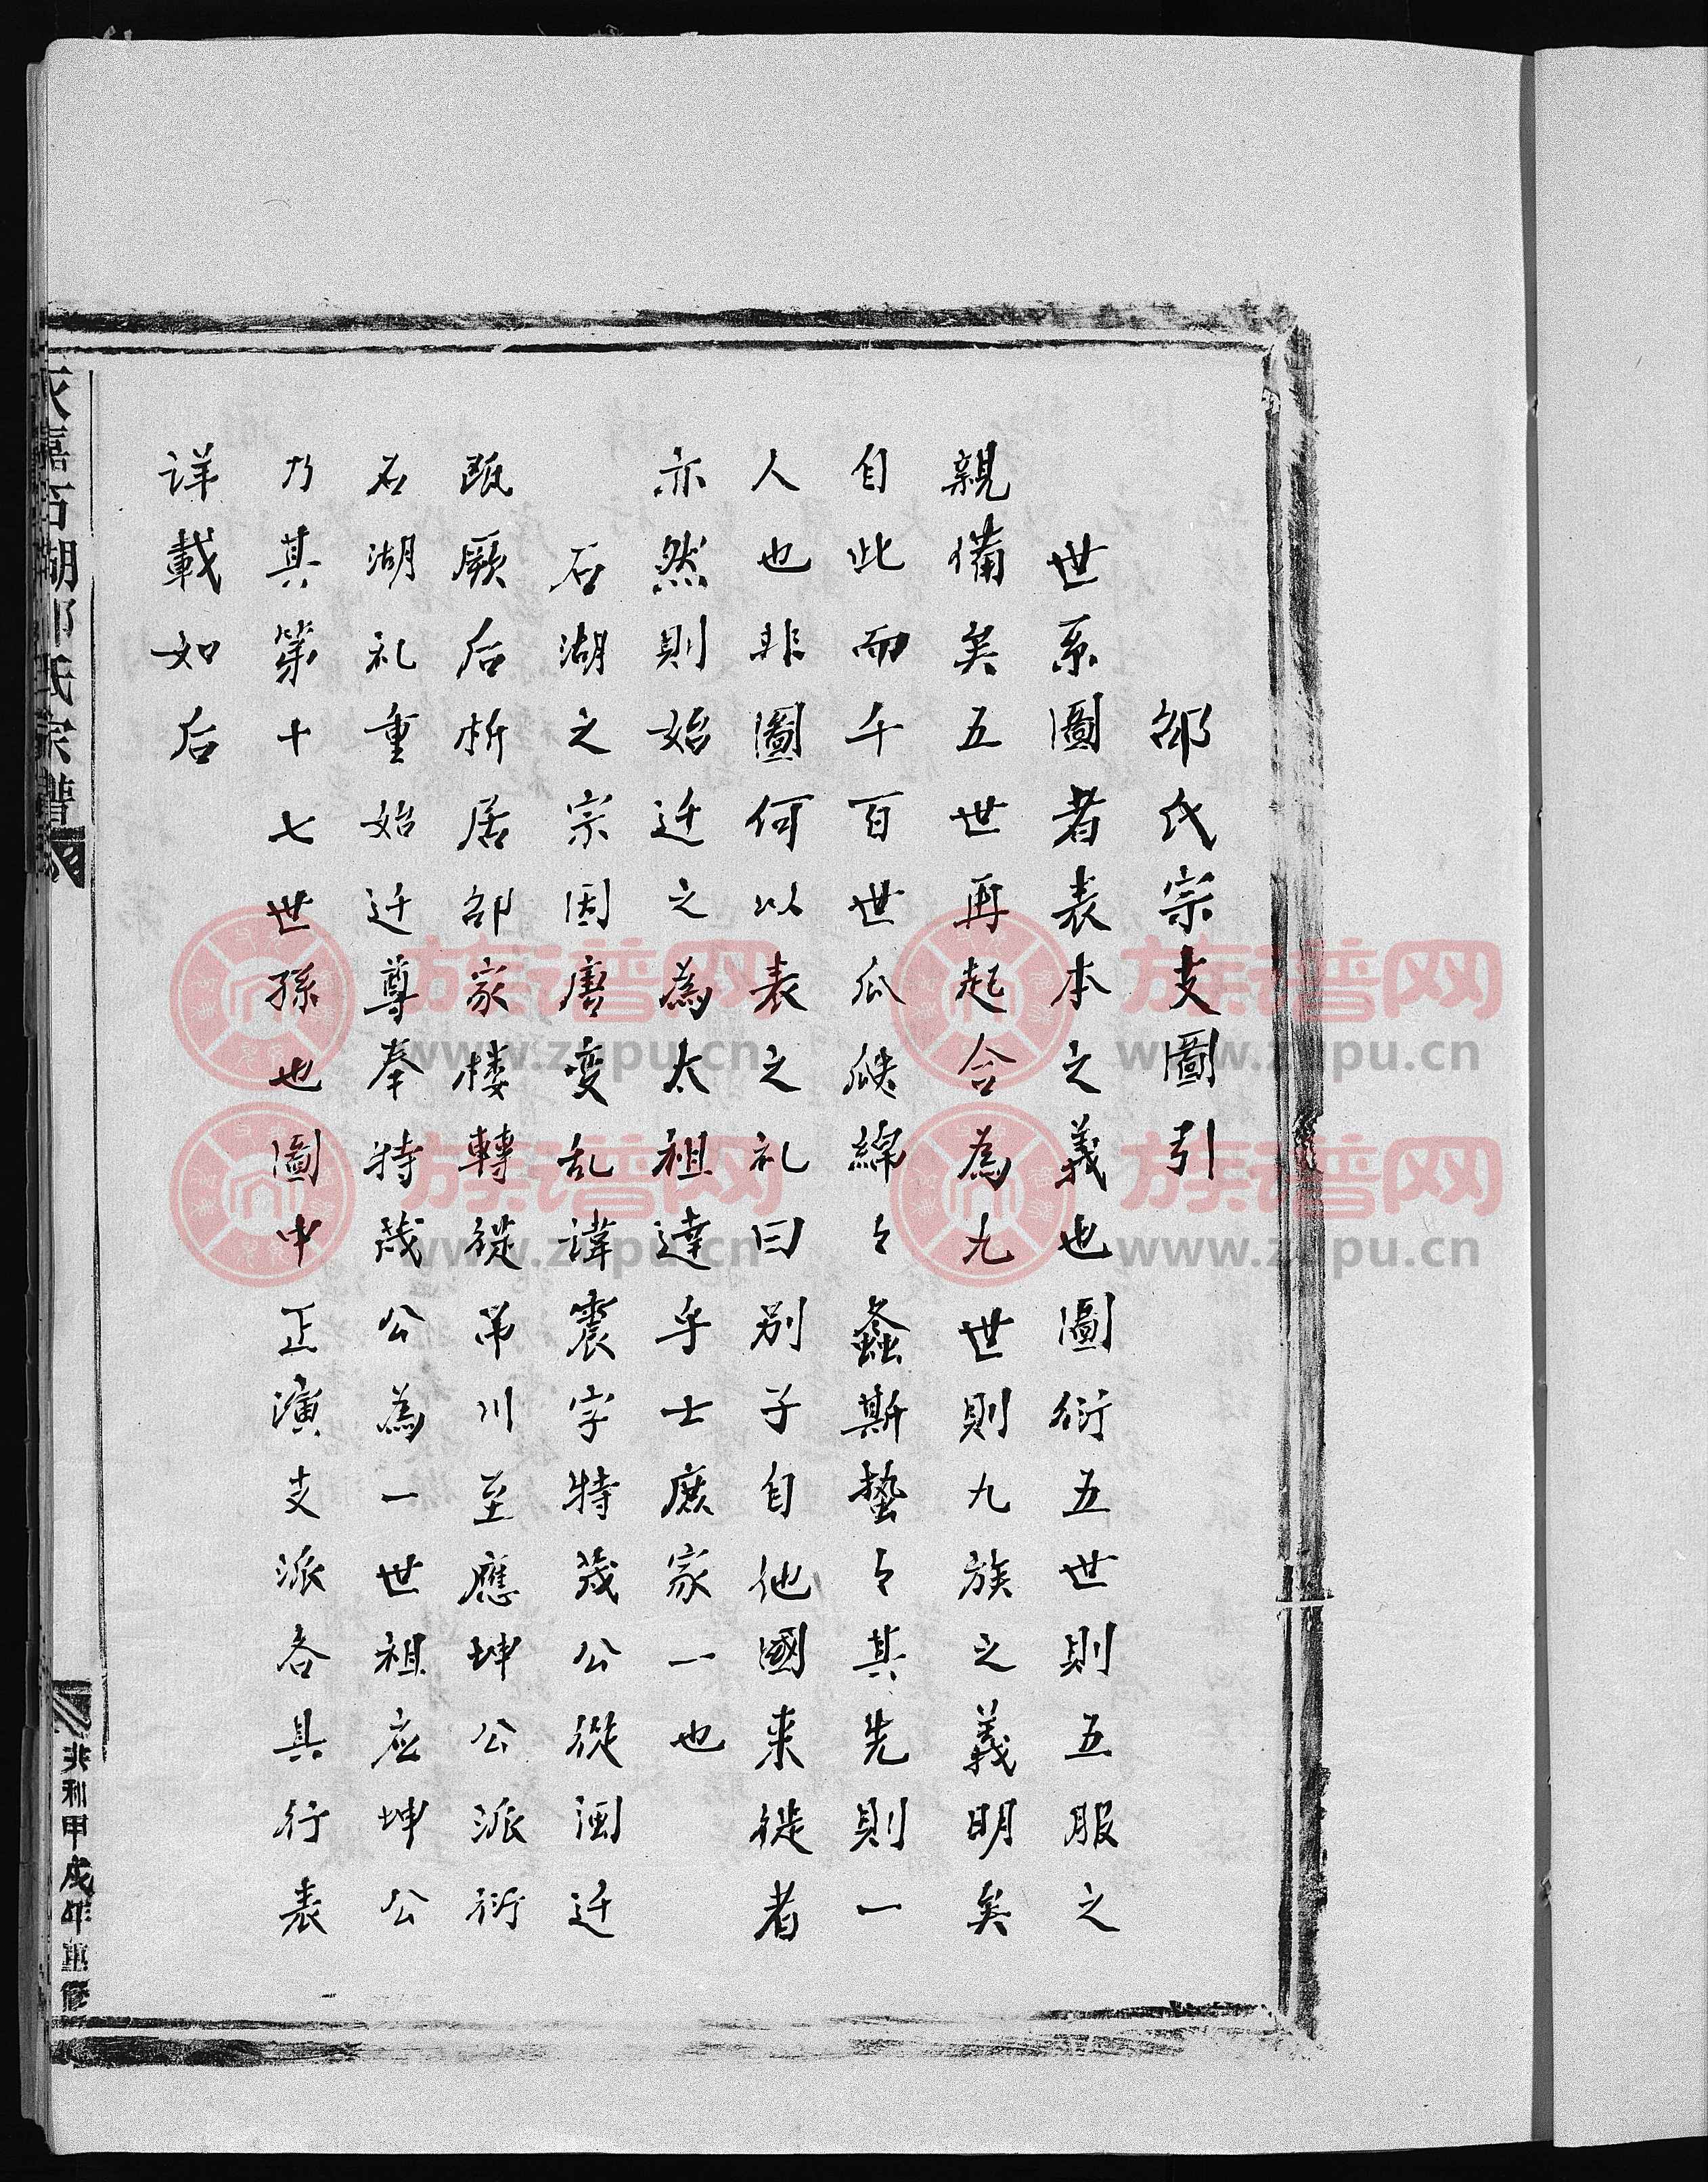 邵氏宗支圖引
世系圖者表本之義也圖衍五世則五服之
親備矣五世再起合為九世則九族之義明矣
自此而千百世瓜瓞綿々螽斯蟄々其先則一
人也非圖何以表之礼曰别子自他國来徙者
亦然則始迁之為太祖達乎士庶家一也
石湖之宗因唐变乱諱震字特茂公從闽迁
瓯厥后析居邵家楼轉従吊川至應坤公派衍
石湖礼重始迁尊奉特茂公為一世祖应坤公
乃其第十七世孫也圖中正演支派各具行表
详載如后
嘉石湖邵氏宗譜
共和甲戌年重修
族谱网
www.zupu.cn
族谱网
www.zupu.cn
族谱网
www.zupu.cn
族谱网
www.zupu.cn